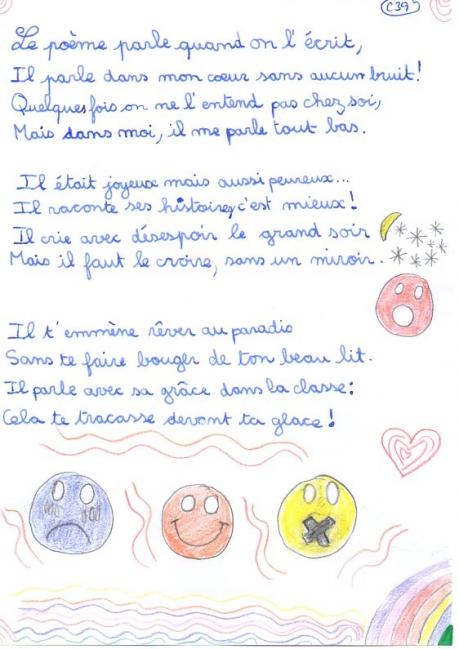 C39
Le poème parle quand on l'écrit,
Il parle dans mon cœur sans aucun bruit !
Quelques fois on ne l'entend pas chez soi,
Mais dans moi, il me parle tout bas.
Il était joyeux mais aussi peureux...
Il raconte ses histoires, c'est mieux !
Il crie avec désespoir le grand soir
Mais il faut le croire, sans un miroir.
Il t'emmène rêver au paradis
Sans te faire bouger de ton beau lit.
Il parle avec sa grâce dans la classe :
Cela te tracasse devant ta glace !